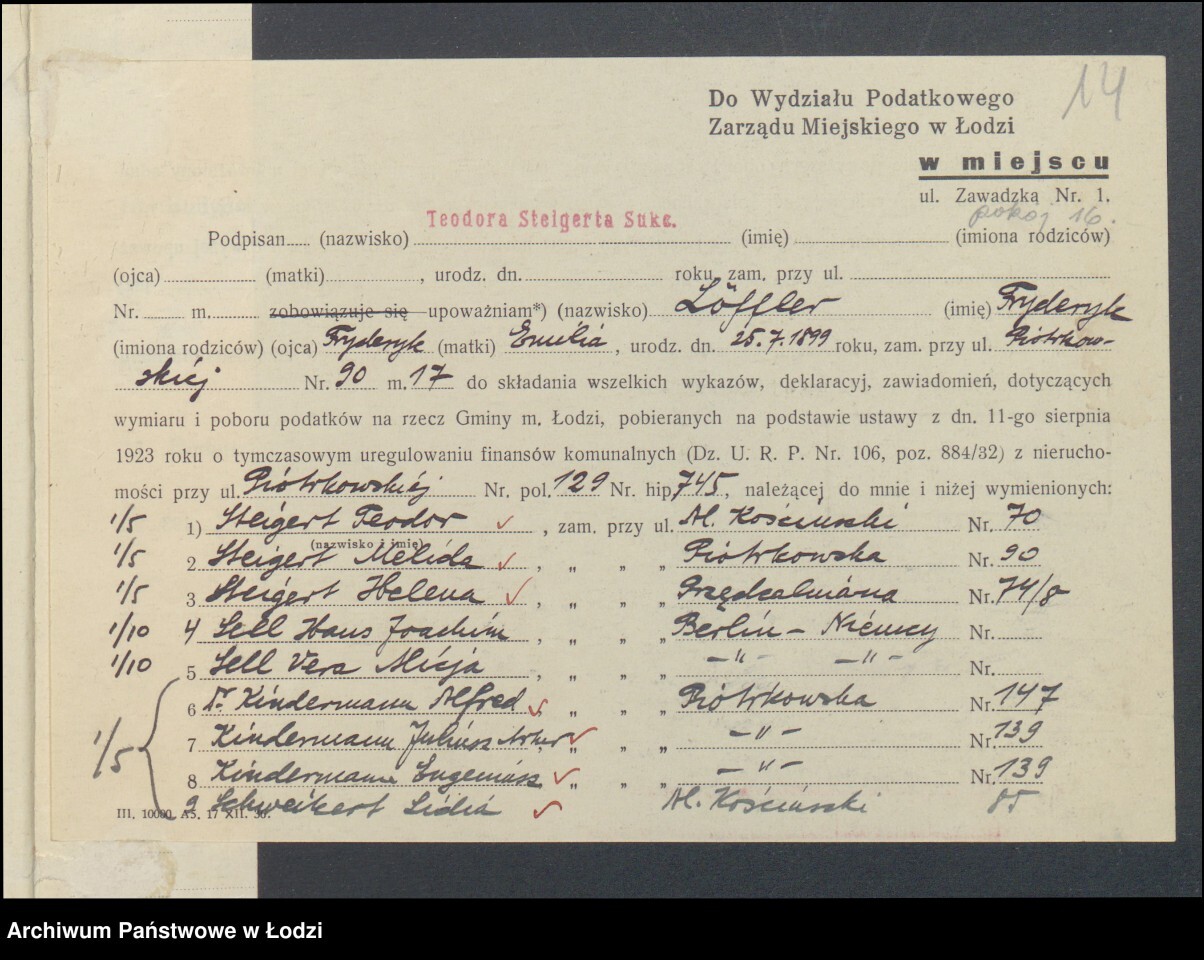 14
Do Wydziału Podatkowego
Zarządu Miejskiego w Łodzi
w miejscu
ul. Zawadzką Nr. 1.
pokój 16.
Teodora Steigerta Sukc.
Podpisan..... (nazwisko) (imię) (imiona rodziców)
(ojca) (matki) , urodz. dn. roku, zam. przy ul.
Nr. m. zobowiązuje się upoważniam*) (nazwisko) Löffler (imię) Fryderyk
(imiona rodziców) (ojca) Fryderyk (matki) Emilia , urodz. dn. 25.7.1899 roku, zam. przy ul. Piotrkow-
skiej Nr. 90 m. 17 do składania wszelkich wykazów, deklaracyj, zawiadomień, dotyczących
wymiaru i poboru podatków na rzecz Gminy m. Łodzi, pobieranych na podstawie ustawy z dn. 11-go sierpnia
1923 roku o tymczasowym uregulowaniu finansów komunalnych (Dz. U. R. P. Nr. 106, poz. 884/32) z nierucho-
mości przy ul. Piotrkowskiej Nr. pol. 129 Nr. hip. 745, należącej do mnie i niżej wymienionych:
1/5 1) Steigert Teodor , zam. przy ul. Al. Kościuszki Nr. 70
(nazwisko i imię)
1/5 2 Steigert Melida , „ „ „ Piotrkowska Nr. 90
1/5 3 Steigert Helena , „ „ „ Przędzalniana Nr. 74/8
1/10 4 Sell Hans Joachim , „ „ „ Berlin - Niemcy Nr.
1/10 5 Sell Vera Alicja , „ „ „ -„- -„- Nr.
6 Dr. Kindermann Alfred , „ „ „ Piotrkowska Nr. 147
1/5 7 Kindermann Juliusz Artur „ „ „ -„- Nr. 139
8 Kindermann Eugeniusz „ „ „ -„- Nr. 139
9 Schweikert Lidia Al. Kościuszki 85
III. 10000. A5. 17 XII. 36.
Archiwum Państwowe w Łodzi